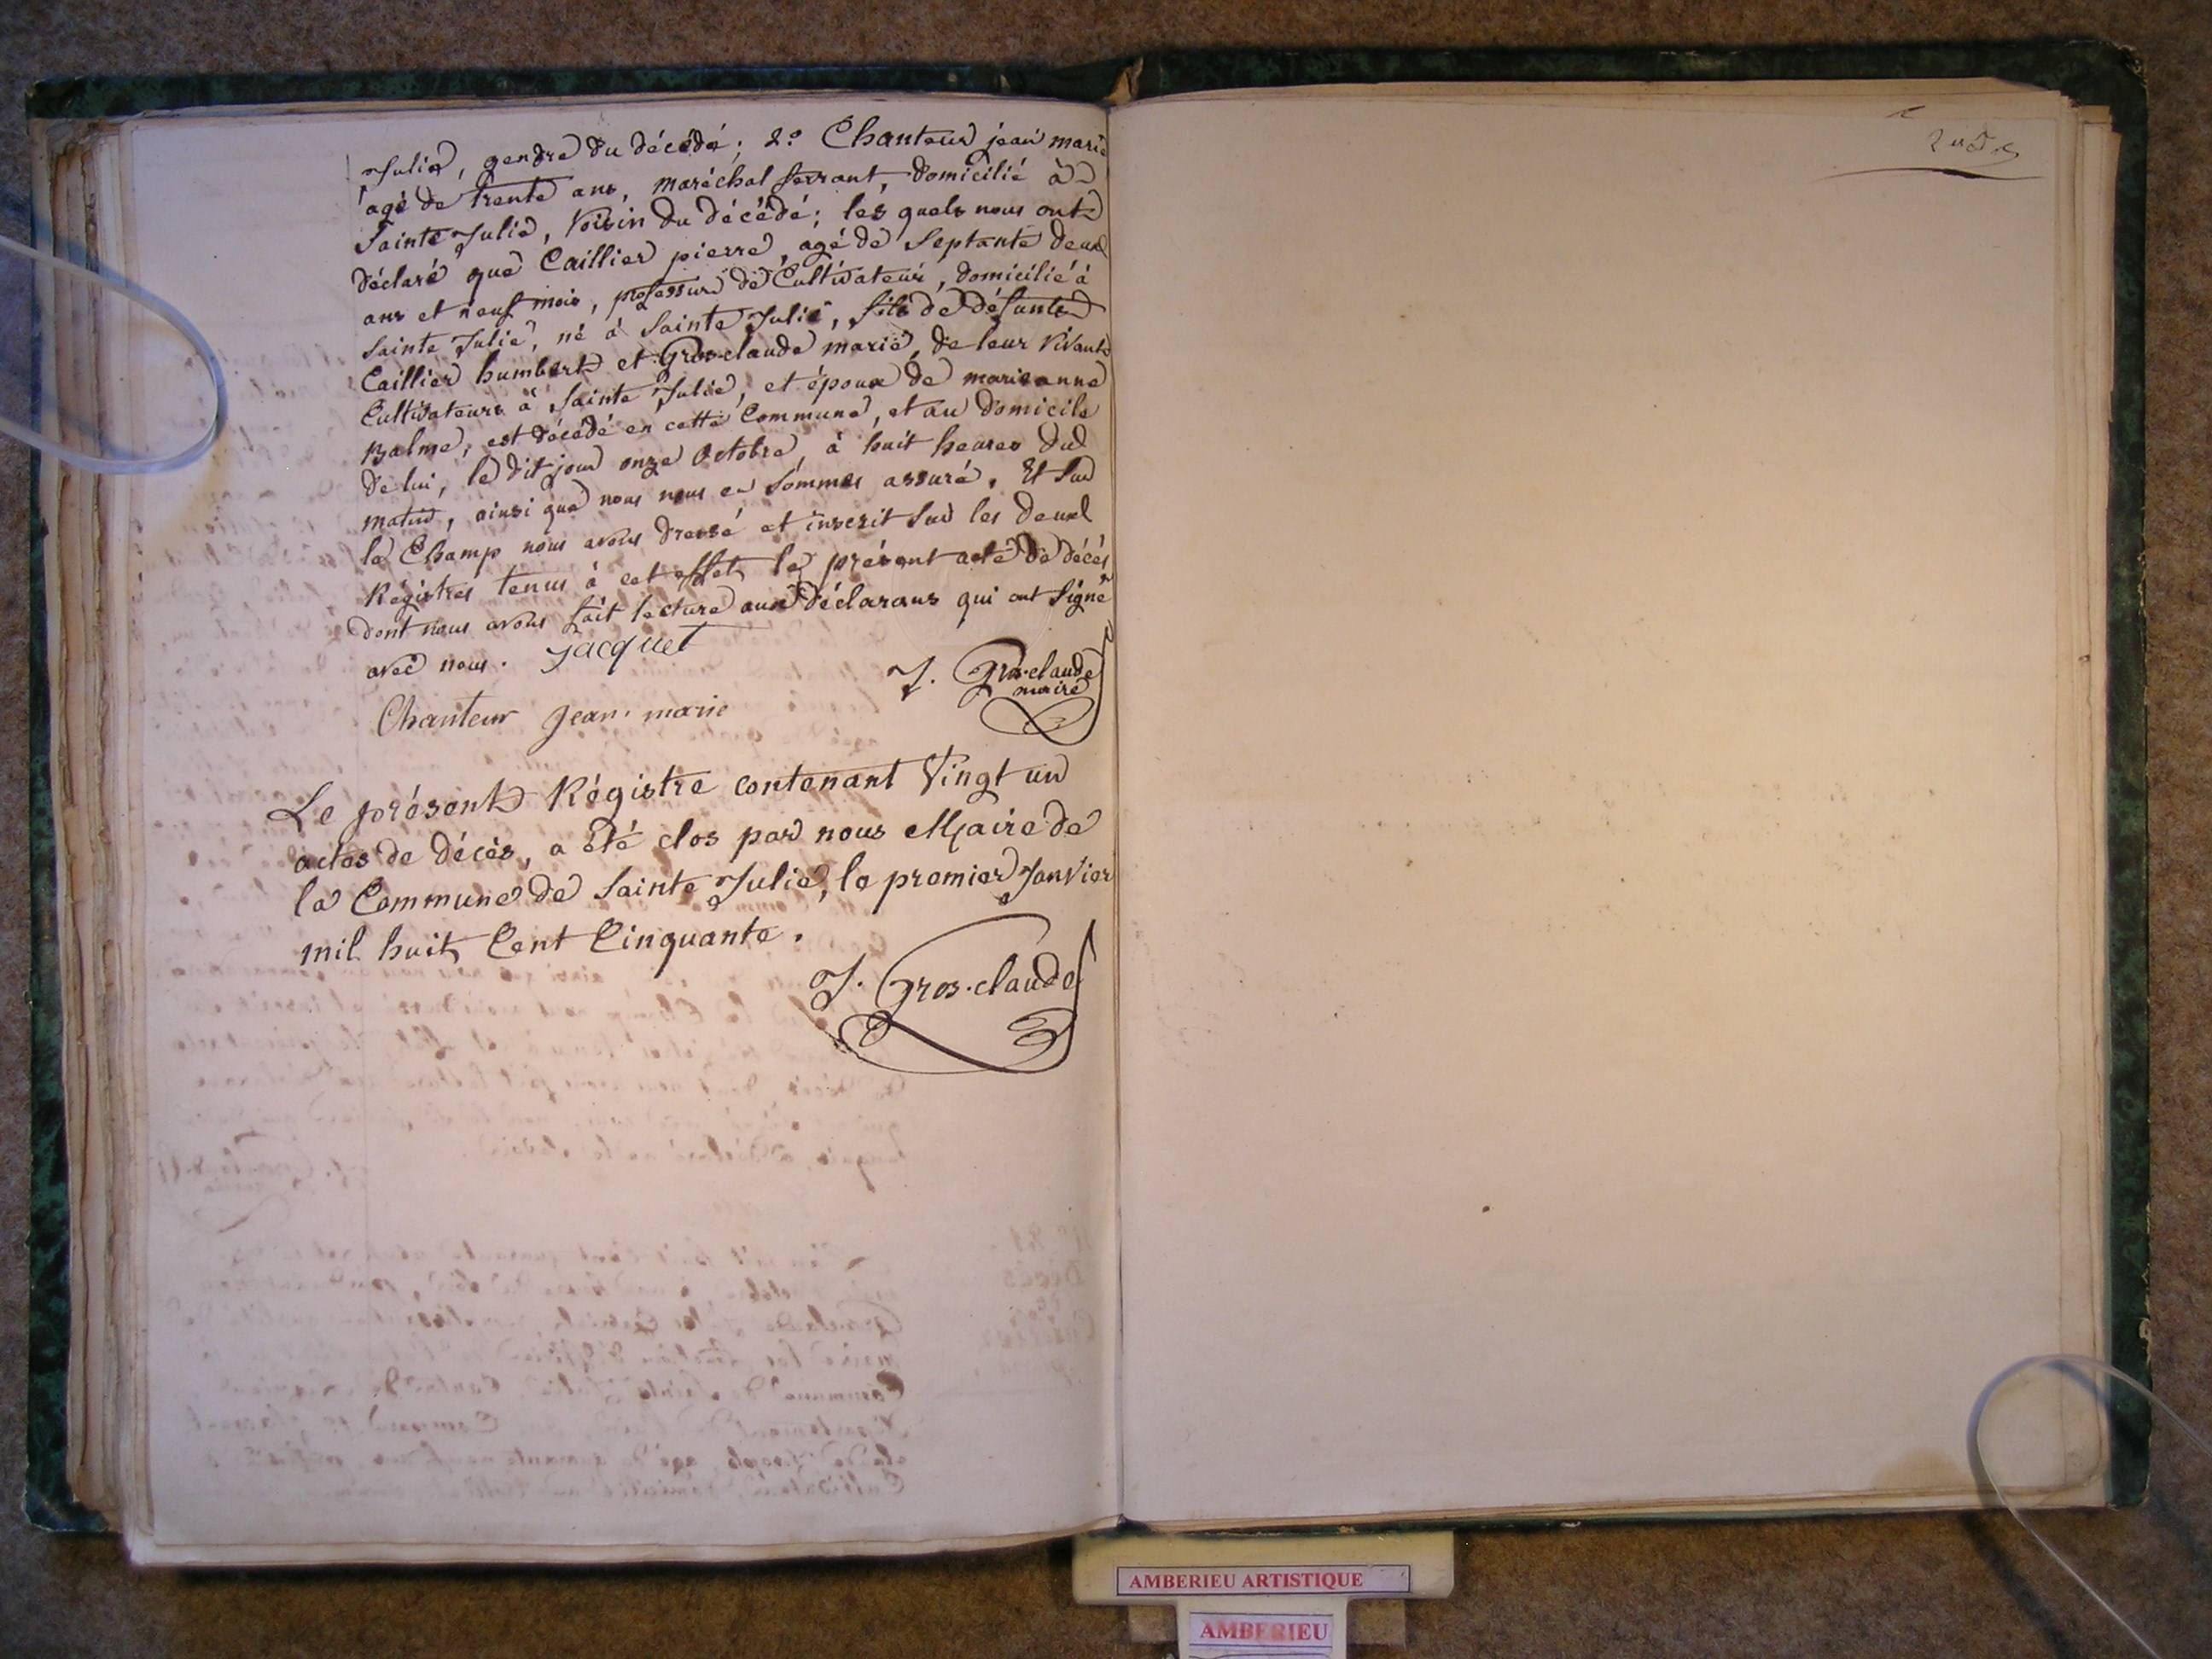 Julie, gendre du décédé; 2.º Chanteur jean marie
agé de trente ans, maréchal ferrant, domicilié à
Sainte Julie, Voisin du décédé; les quels nous ont
déclaré que Caillier pierre, agé de Septante deux
ans et neuf mois, professeur de Cultivateur, domicilié à
Sainte Julie, né à Sainte Julie, fils de défunts
Caillier humbert et Gros-claude marie, de leur Vivants
Cultivateurs à Sainte Julie, et époux de marieanne
Balme, est décédé en cette Commune, et au domicile
de lui, le dit jour onze Octobre, à huit heures du
matin, ainsi que nous nous en sommes assuré. Et Sur
la Champ nous avons dressé et inscrit Sur les deux
Régistres tenus à cet effet, le présent acte de décés
dont nous avons fait lecture aux déclarans qui ont Signé
avec nous. Jacquet
J. Gros-claude
maire
Chanteur Jean. marie
Le présent Régistre contenant Vingt un
actes de décès, a été clos par nous Maire de
la Commune de Sainte Julie, le premier Janvier
mil huit Cent Cinquante.
J. Gros.claude
AMBERIEU ARTISTIQUE
AMBERIEU